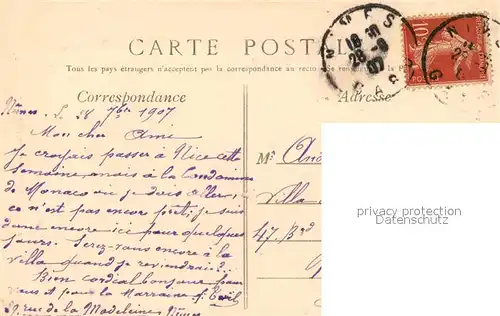 CARTE POSTALE
Tous les pays étrangers n'acceptent pas la correspondance au recto. Se renseigner
Correspondance
Adresse
NIMES
18 30
28 -9
07
GARD
10
Nîmes, le 28 7bre 1907
Mon cher Ami
Je croyais passer à Nice cette
semaine, mais à la Condamine
de Monaco où je dois aller,
ce n'est pas encore prêt; je suis
donc encore ici pour quelques
jours. Serez-vous encore à la
villa quand je reviendrai?..
Bien cordial bonjour pour
vous et pour la Marraine.
rue de la Madeleine Nîmes
Mr
Villa
47. Bd
privacy protection
Datenschutz